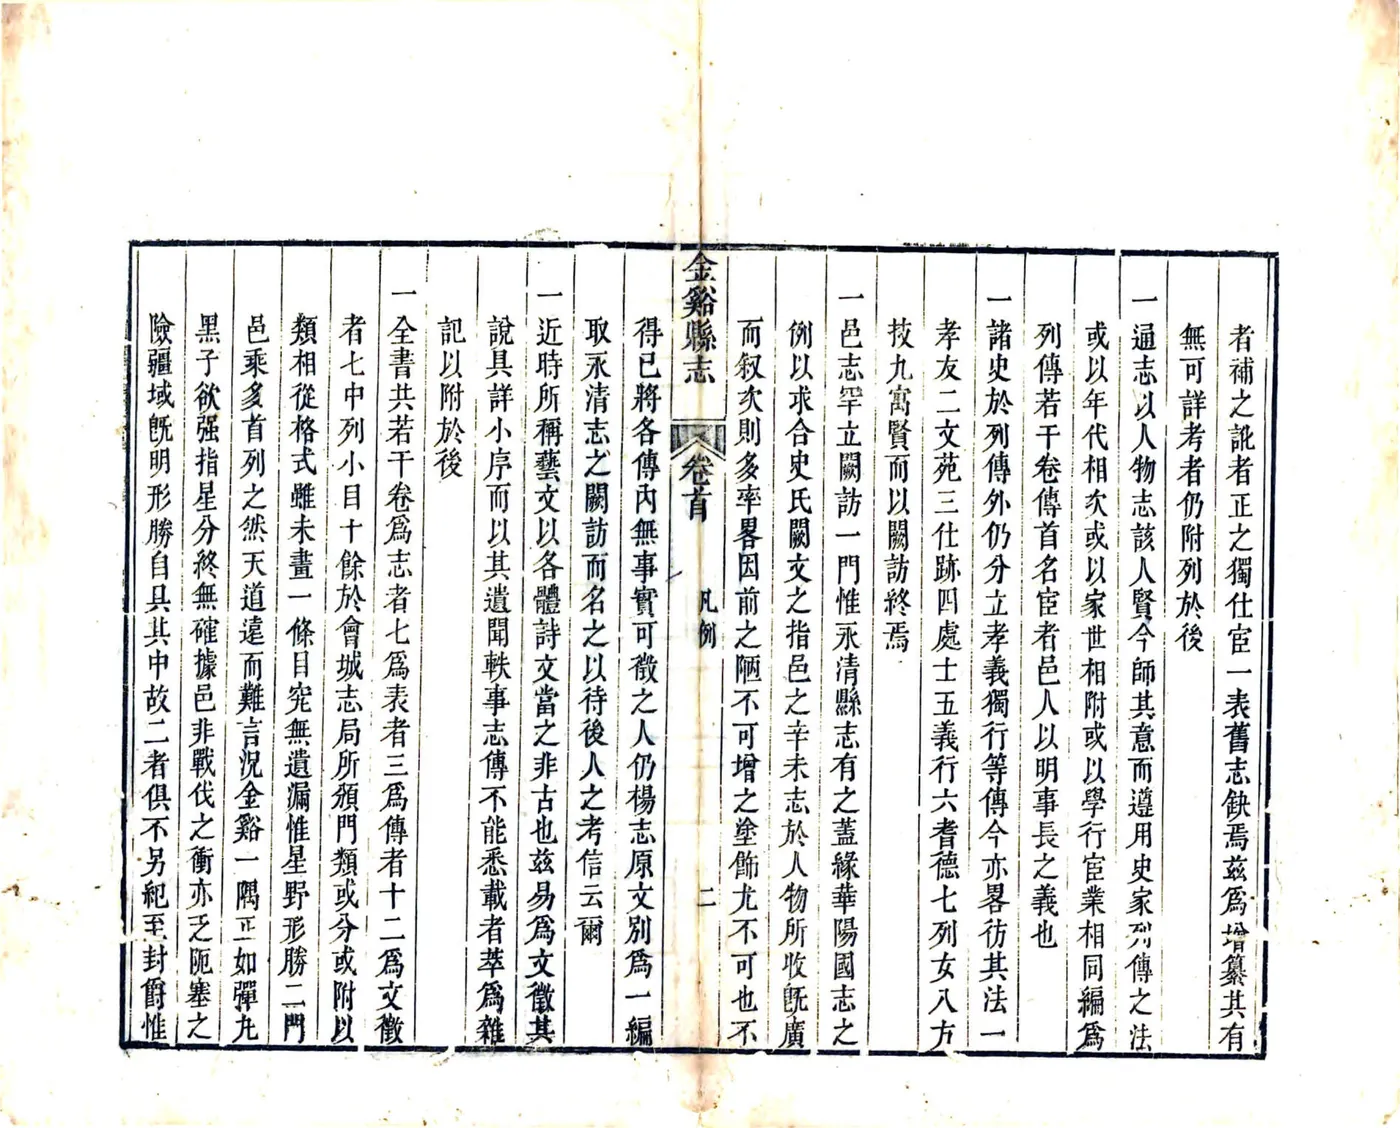 者補之訛者正之獨仕宦一表舊志缺焉茲爲增纂其有
無可詳考者仍附列於後
一通志以人物志該人賢今師其意而遵用史家列傳之法
或以年代相次或以家世相附或以學行宦業相同編爲
列傳若干卷傳首名宦者邑人以明事長之義也
一諸史於列傳外仍分立孝義獨行等傳今亦畧彷其法一
孝友二文苑三仕跡四處士五義行六耆德七列女八方
技九寓賢而以闕訪終焉
一邑志罕立闕訪一門惟永清縣志有之蓋緣華陽國志之
例以求合史氏闕文之指邑之辛未志於人物所收旣廣
而叙次則多率畧因前之陋不可增之塗飾尤不可也不
金谿縣志 卷首 凡例 二
得已將各傳內無事實可徵之人仍楊志原文別爲一編
取永清志之闕訪而名之以待後人之考信云爾
一近時所稱藝文以各體詩文當之非古也茲易爲文徵其
說具詳小序而以其遺聞軼事志傳不能悉載者萃爲雜
記以附於後
一全書共若干卷爲志者七爲表者三爲傳者十二爲文徵
者七中列小目十餘於會城志局所頒門類或分或附以
類相從格式雖未畫一條目究無遺漏惟星野形勝二門
邑乘多首列之然天道遠而難言況金谿一隅正如彈丸
黑子欲强指星分終無確據邑非戰伐之衝亦乏阨塞之
險疆域旣明形勝自具其中故二者俱不另紀至封爵惟